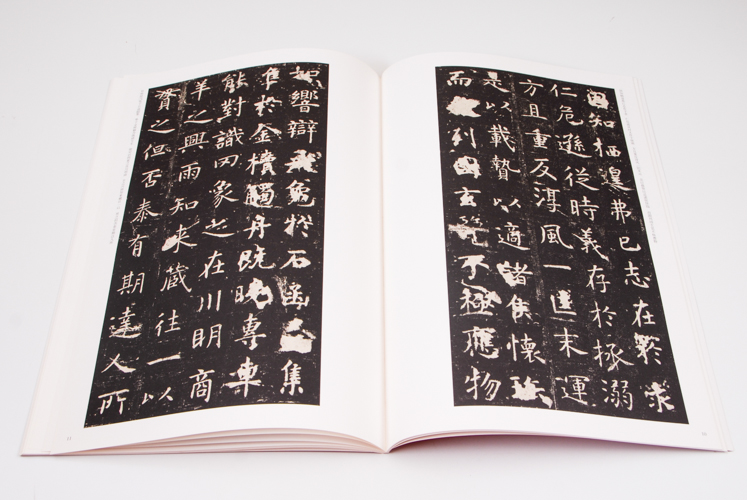 知栖遑弗已志在於求
仁危遜從時義存於拯溺
方且重反淳風一匡末運
是以載贄以適諸侯懷珎
而列國玄覽不極應物
如響辯飛龜於石函集
隼於金櫝觸舟既曉專車
能對識罔象之在川明商
羊之興雨知來藏往一以
貫之但否泰有期達人所